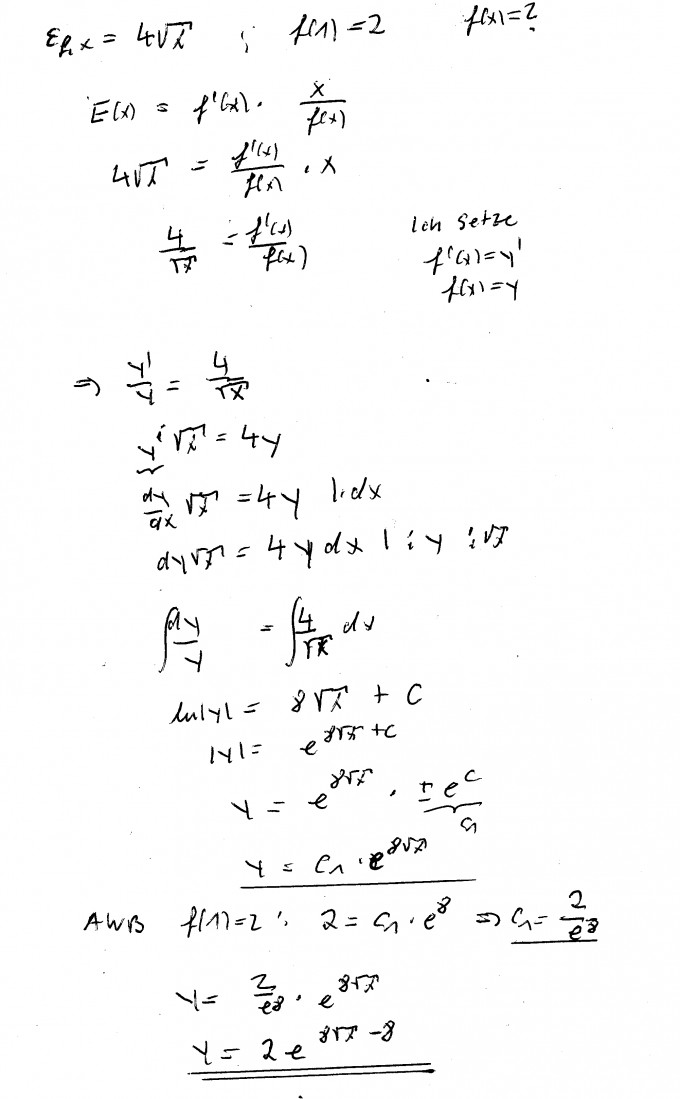 ε_{f,x} = 4√x ; f(1)=2 f(x)=?
E(x) = f'(x) · x/f(x)
4√x = f'(x)/f(x) · x
4/√x = f'(x)/f(x) Ich setze
f'(x)=y'
f(x)=y
⇒ y'/y = 4/√x
y' √x = 4y
dy/dx √x = 4y |·dx
dy√x = 4y dx | : y : √x
∫ dy/y = ∫ 4/√x dx
ln|y| = 8√x + C
|y| = e^{8√x + C}
y = e^{8√x} · ± e^C
C₁
y = C₁ · e^{8√x}
AWB f(1)=2 : 2 = C₁ · e^8 ⇒ C₁ = 2/e^8
y = 2/e^8 · e^{8√x}
y = 2e^{8√x - 8}